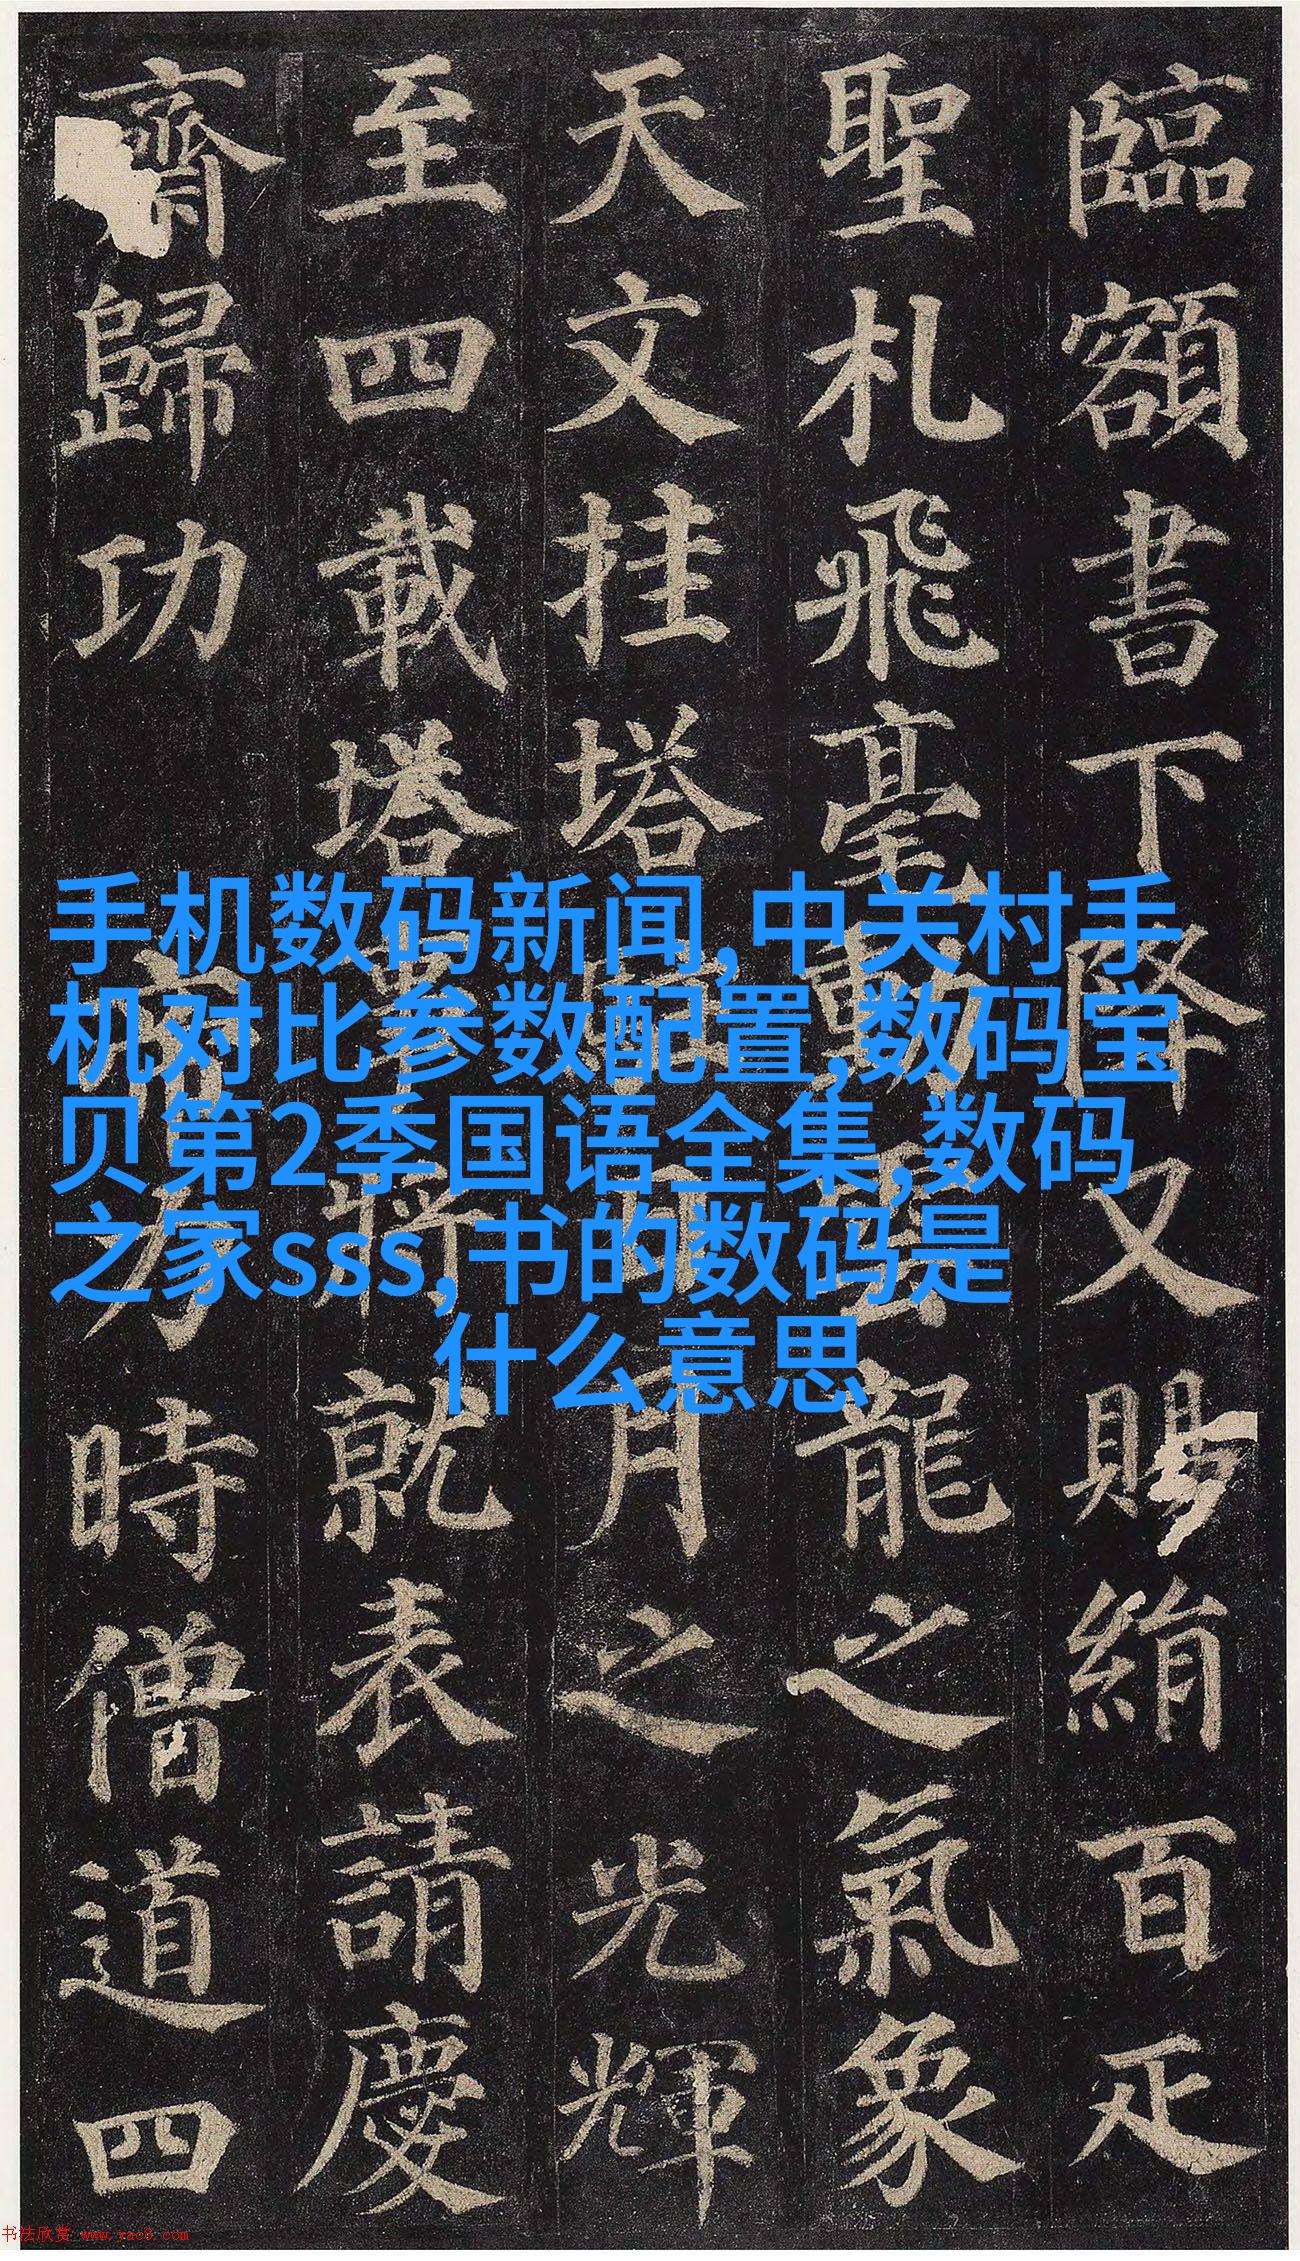 臨額書下降又賜絹百疋
聖札飛毫動雲龍之氣象
天文挂塔駐日月之光輝
至四載塔事將就表請慶
齋歸功帝力時僧道四
手机数码新闻,中关村手
机对比参数配置,数码宝
贝第2季国语全集,数码
之家sss,书的数码是
什么意思
书法欣赏 www.yac8.com